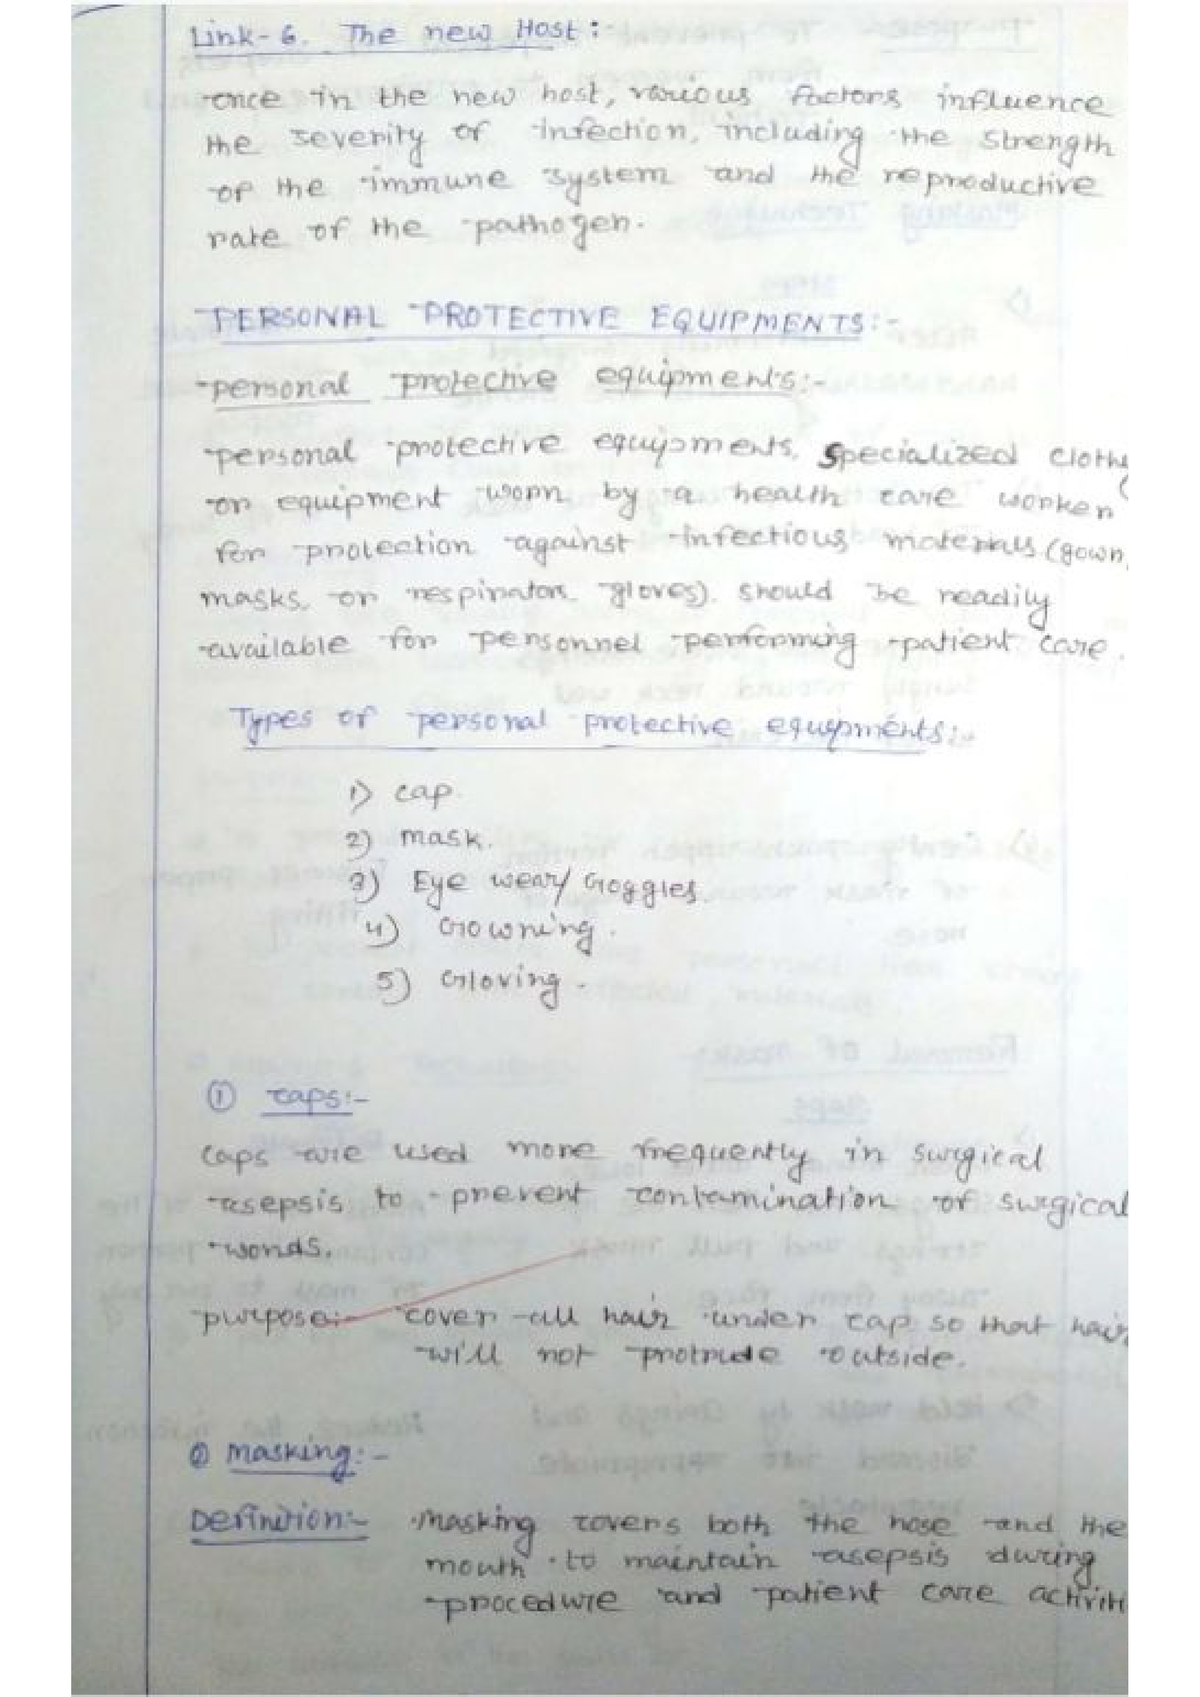 Link-6. The new Host:
once in the new host, various factors influence
the severity of infection, including the strength
of the immune system and the reproductive
rate of the pathogen.
PERSONAL PROTECTIVE EQUIPMENTS:-
personal protective equipments:-
personal protective equipments, specialized cloth
or equipment worn by a health care worker
for protection against infectious materials (gown,
masks, or respirators. gloves). should be readily
available for personnel performing patient care.
Types of personal protective equipments:-
1) cap.
2) mask.
3) Eye wear/ Goggles.
4) Gowning.
5) Gloving.
① caps:-
caps are used more frequently in surgical
asepsis to prevent contamination of surgical
wonds.
purpose:- cover all hair under cap so that hair
will not protrude outside.
② masking:-
Definition:- masking covers both the nose and the
mouth to maintain asepsis during
procedure and patient care activiti